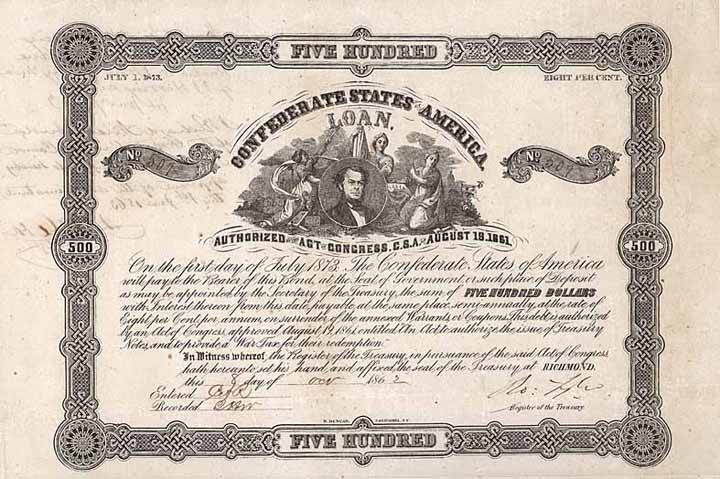 FIVE HUNDRED
JULY 1, 1873.
EIGHT PER CENT.
CONFEDERATE STATES OF AMERICA.
LOAN.
No 507
No 507
AUTHORIZED BY THE ACT OF CONGRESS, C.S.A. OF AUGUST 19. 1861.
500
500
On the first day of July 1873. The Confederate States of America
will pay to the Bearer of this Bond, at the Seat of Government, or such place of Deposit
as may be appointed by the Secretary of the Treasury, the sum of FIVE HUNDRED DOLLARS
with Interest thereon from this date, payable at the same place, semi annually, at the rate of
Eight per Cent per annum, on surrender of the annexed Warrants or Coupons. This debt is authorized
by an Act of Congress, approved August 19, 1861, entitled An Act to authorize the issue of Treasury
Notes, and to provide a War Tax for their redemption."
In Witness whereof, the Register of the Treasury, in pursuance of the said Act of Congress
hath hereunto set his hand, and affixed the seal of the Treasury, at RICHMOND.
this day of Nov 1862
Entered
Recorded
Ro: Tyler
Register of the Treasury.
COLUMBIA, S.C.
FIVE HUNDRED